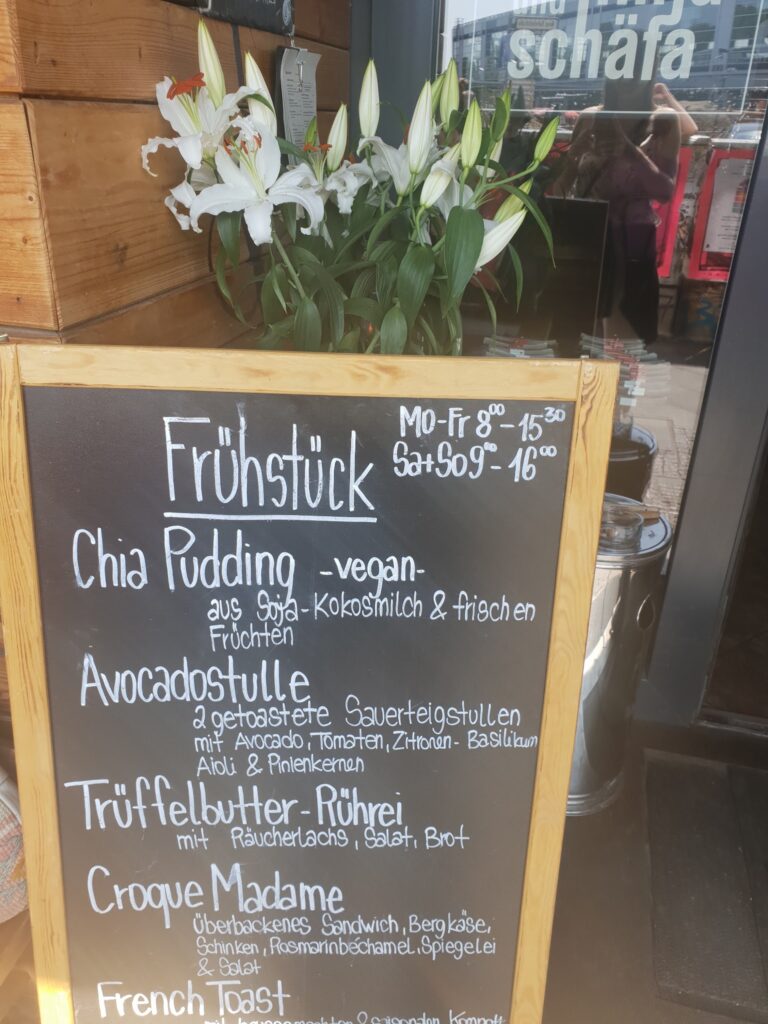 schäfa
Frühstück
Mo-Fr 8⁰⁰-15³⁰
Sa+So 9⁰⁰-16⁰⁰
Chia Pudding -vegan-
aus Soja-Kokosmilch & frischen
Früchten
Avocadostulle
2 getoastete Sauerteigstullen
mit Avocado, Tomaten, Zitronen-Basilikum
Aioli & Pinienkernen
Trüffelbutter-Rührei
mit Räucherlachs, Salat, Brot
Croque Madame
überbackenes Sandwich, Bergkäse,
Schinken, Rosmarinbéchamel, Spiegelei
& Salat
French Toast